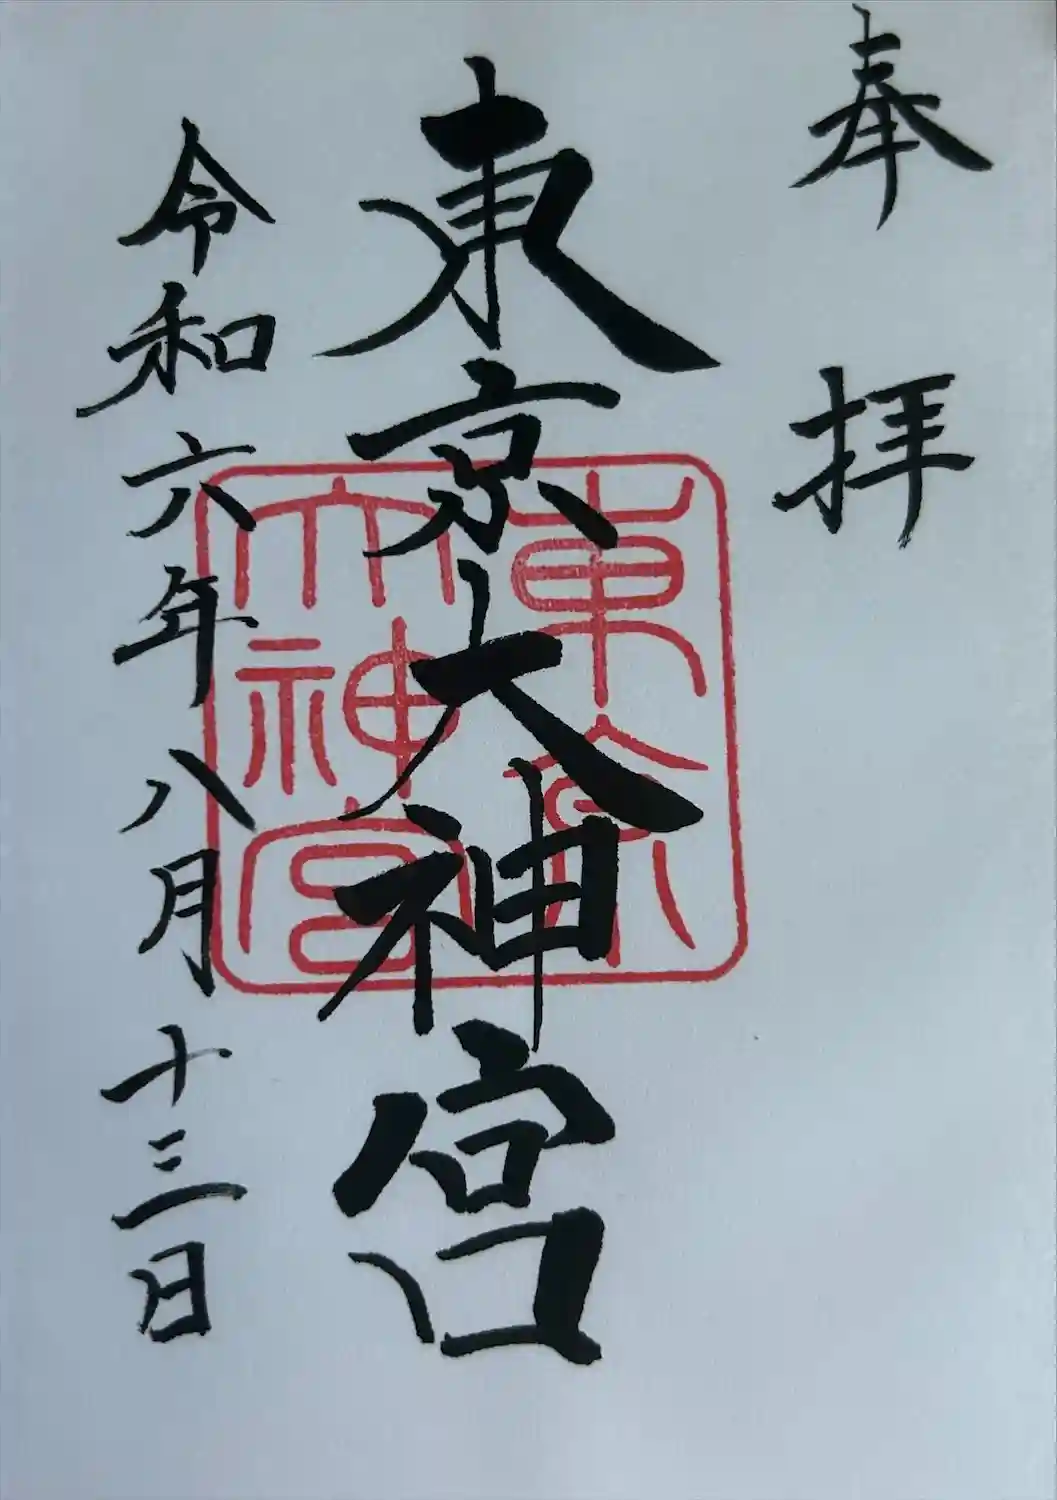 奉拝
東京大神宮
東京
大神宮
令和六年八月十三日